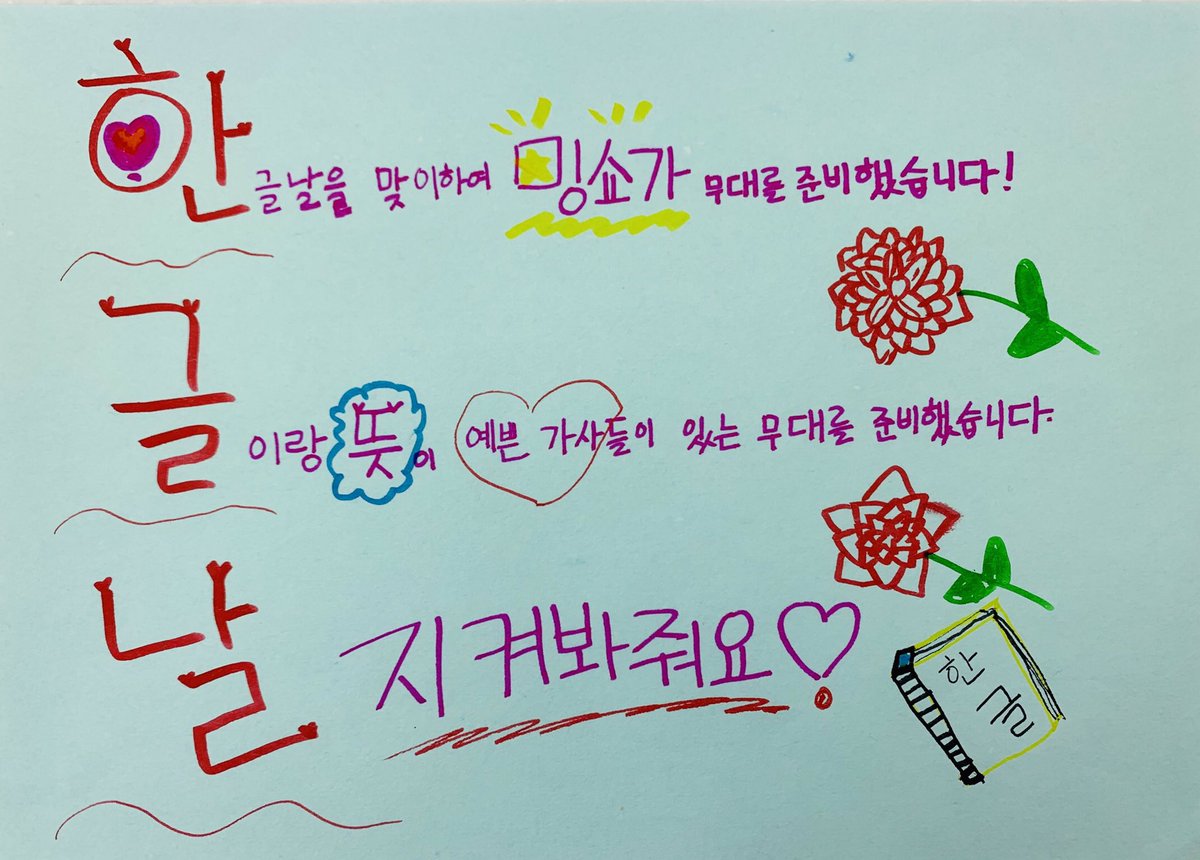 한글날을 맞이하여 밍쇼가 무대를 준비했습니다!
글이랑 뜻이 예쁜 가사들이 있는 무대를 준비했습니다.
날 지켜봐줘요♡
한
글